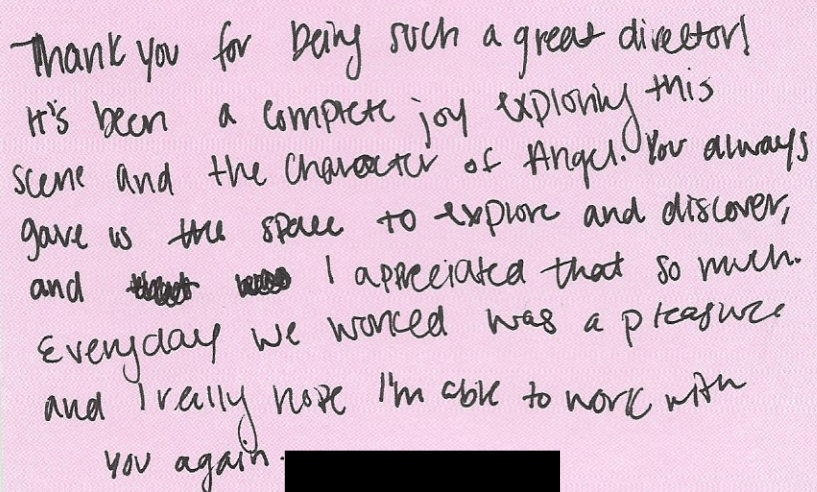 Thank you for being such a great director!
It's been a complete joy exploring this
scene and the character of Angel. You always
gave us the space to explore and discover,
and I appreciated that so much.
Everyday we worked was a pleasure
and I really hope I'm able to work with
you again.